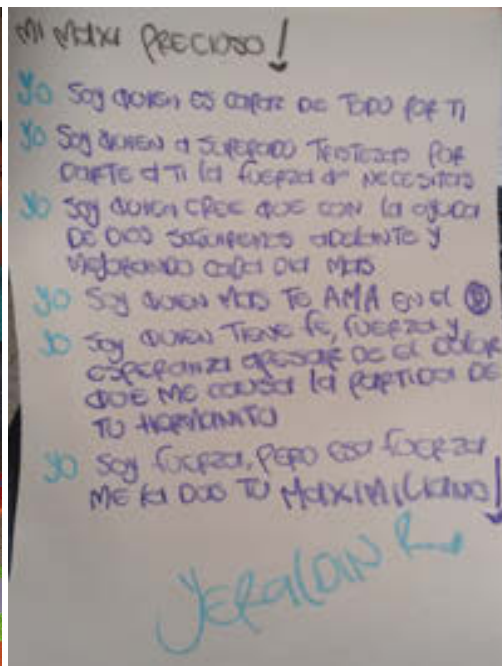 MI MAXI PRECIOSO!
YO SOY QUIEN ES CAPAZ DE TODO POR TI
YO SOY QUIEN A SUPERADO TRISTEZAS POR
DARTE A TI LA FUERZA QE NECESITAS
YO SOY QUIEN CREE QUE CON LA AYUDA
DE DIOS SEGUIREMOS ADELANTE Y
MEJORANDO CADA DIA MAS
YO SOY QUIEN MAS TE AMA EN EL
YO SOY QUIEN TIENE FE, FUERZA Y
ESPERANZA APESAR DE EL DOLOR
QUE ME CAUSA LA PARTIDA DE
TU HERMANITO
YO SOY FUERZA, PERO ESA FUERZA
ME LA DAS TU MAXIMILIANO!
YERALDIN R